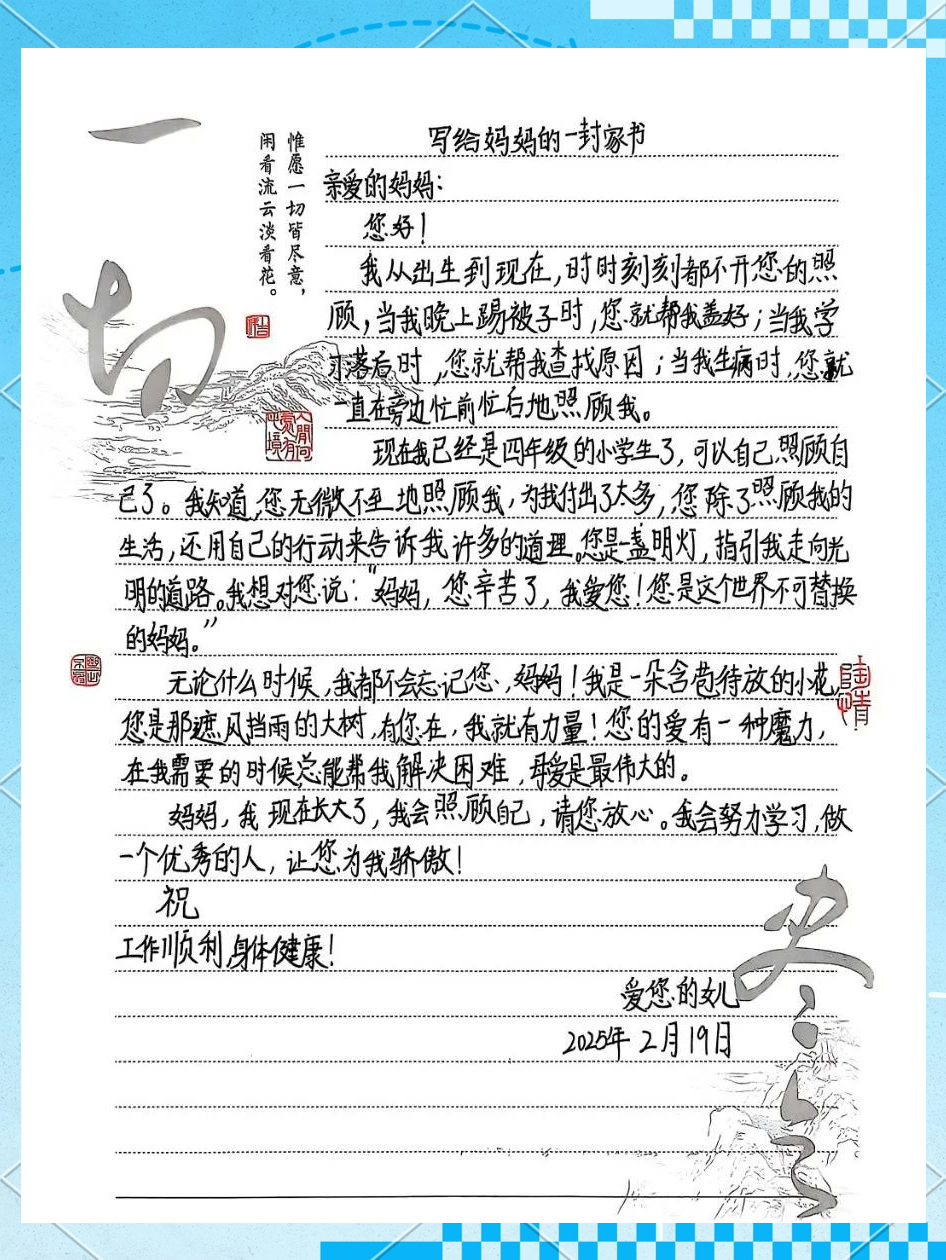 一切
惟愿一切皆尽意，
闲看流云淡看花。
写给妈妈的一封家书
亲爱的妈妈：
您好！
我从出生到现在，时时刻刻都不开您的照
顾，当我晚上踢被子时，您就帮我盖好；当我学
习落后时，您就帮我查找原因；当我生病时，您就
一直在旁边忙前忙后地照顾我。
现在我已经是四年级的小学生了，可以自己照顾自
己了。我知道，您无微不至地照顾我，为我付出了太多，您除了照顾我的
生活，还用自己的行动来告诉我许多的道理。您是一盏明灯，指引我走向光
明的道路。我想对您说：“妈妈，您辛苦了，我爱您！您是这个世界不可替换
的妈妈。”
无论什么时候，我都不会忘记您，妈妈！我是一朵含苞待放的小花，
您是那遮风挡雨的大树，有您在，我就有力量！您的爱有一种魔力，
在我需要的时候总能帮我解决困难，母爱是最伟大的。
妈妈，我现在长大了，我会照顾自己，请您放心。我会努力学习，做
一个优秀的人，让您为我骄傲！
祝
工作顺利，身体健康！
爱您的女儿
2025年2月19日